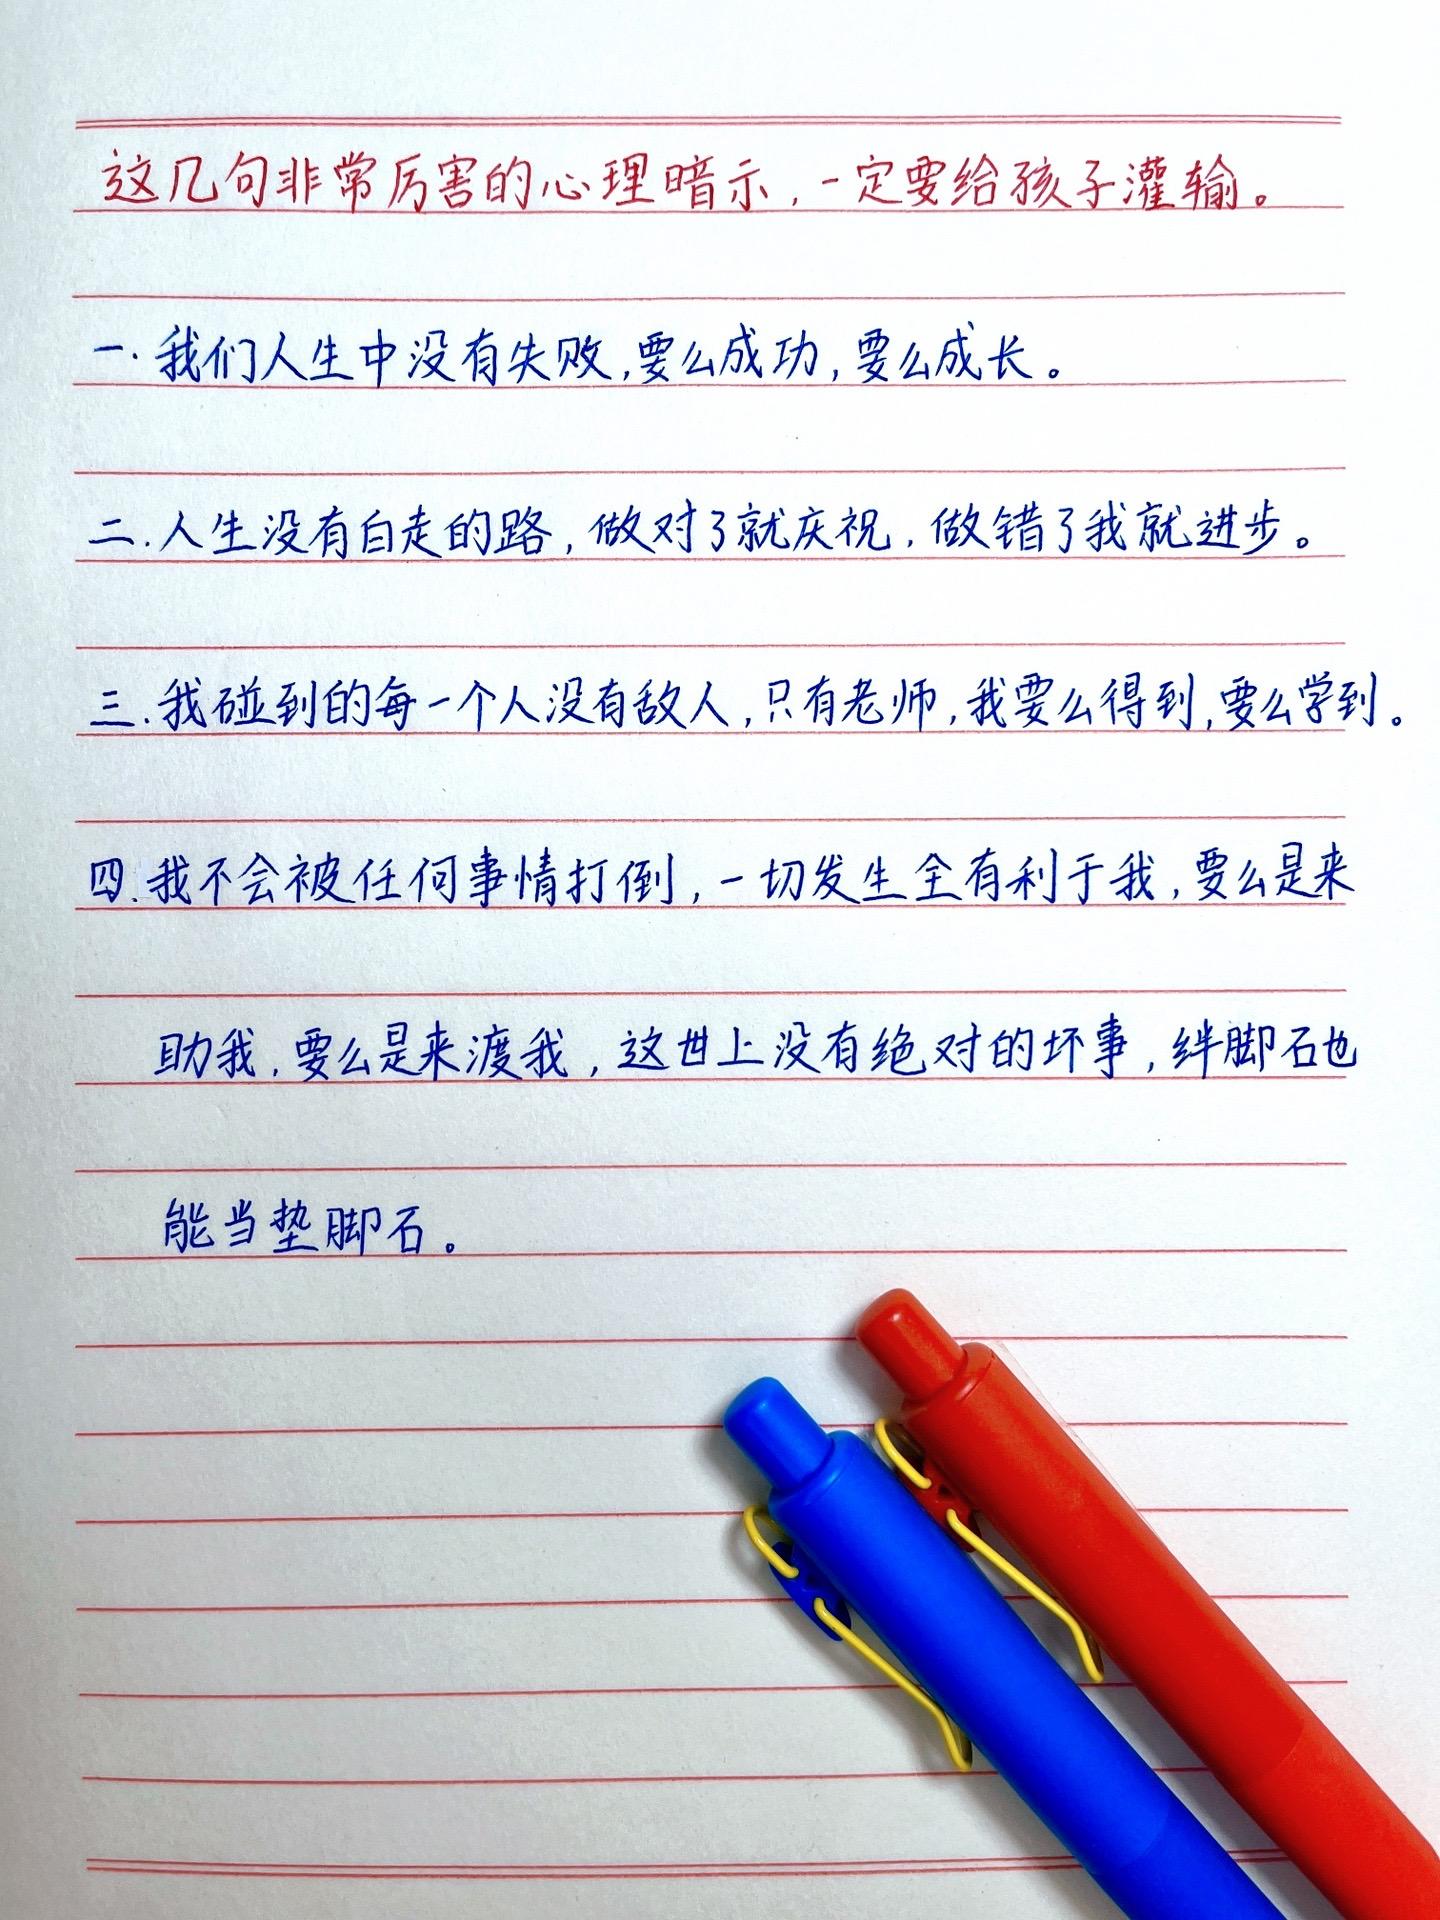 这几句非常厉害的心理暗示，一定要给孩子灌输。
一．我们人生中没有失败，要么成功，要么成长。
二．人生没有白走的路，做对了就庆祝，做错了我就进步。
三．我碰到的每一个人没有敌人，只有老师，我要么得到，要么学到。
四．我不会被任何事情打倒，一切发生全有利于我，要么是来
助我，要么是来渡我，这世上没有绝对的坏事，绊脚石也
能当垫脚石。